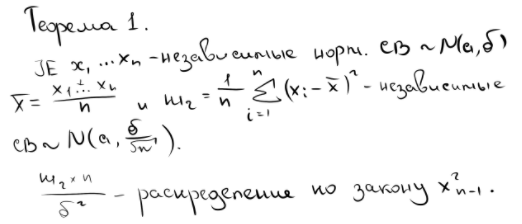 Теорема 1.
JE x₁ ... xₙ - независимые норм. СВ ~ N(a, б)
x̄ = (x₁ + ... xₙ)/n и m₂ = 1/n ∑ᵢ₌₁ⁿ (xᵢ - x̄)² - независимые
СВ ~ N(a, б/√n).
(m₂ × n)/б² - распределение по закону x²ₙ₋₁.